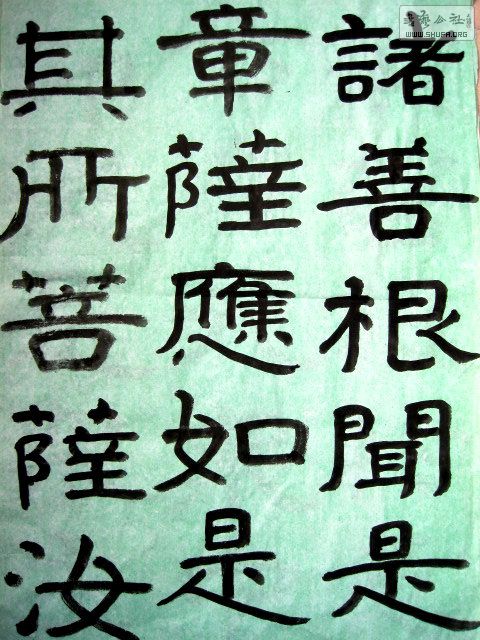 諸善根聞是
章薩應如是
其所菩薩汝
書藝公社
WWW.SHUFA.ORG